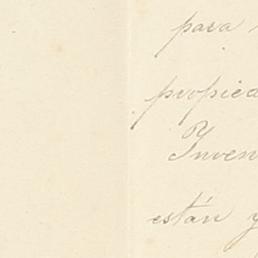 para
propied
Inven
están y